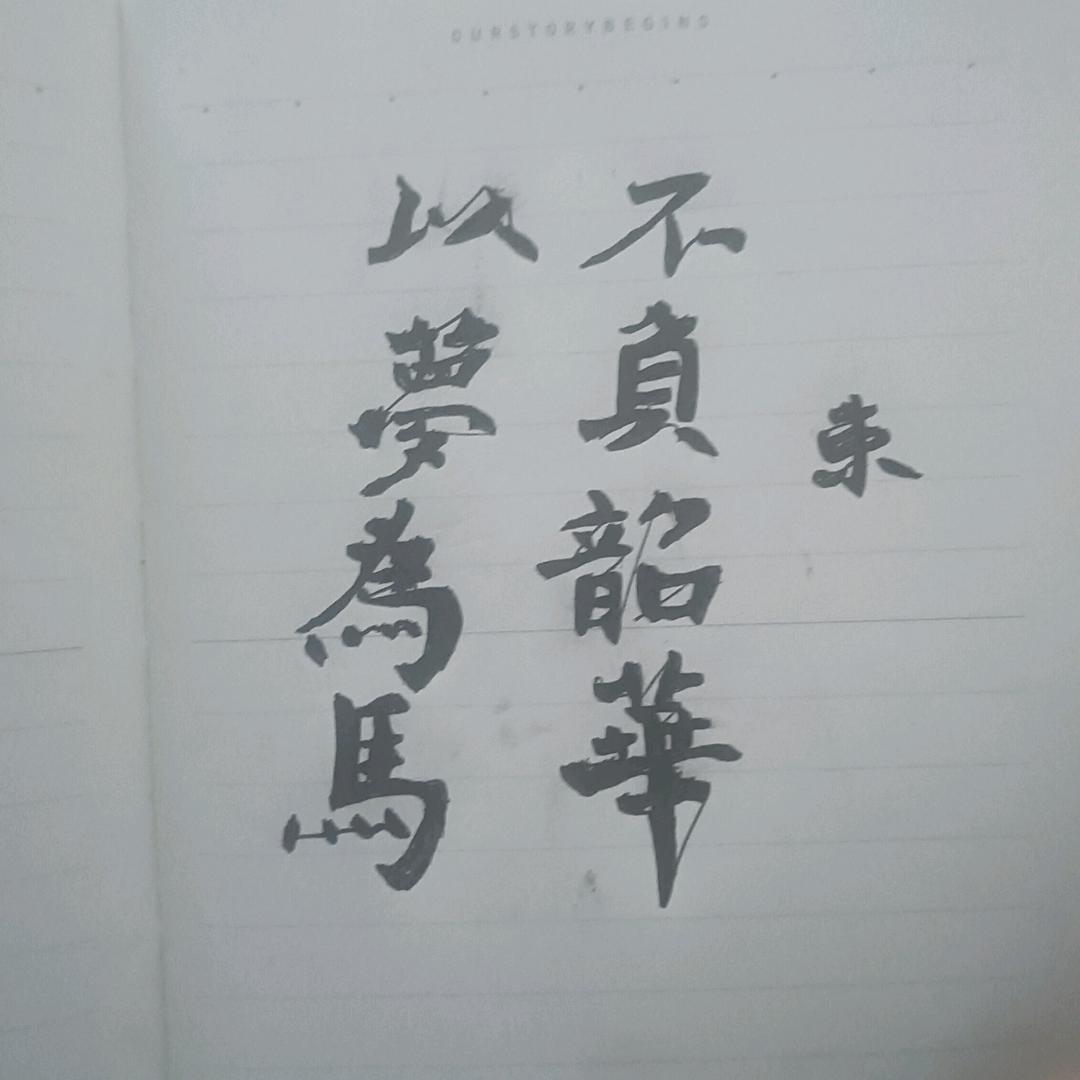 OURSTORYBEGINS
不負韶華
以夢為馬